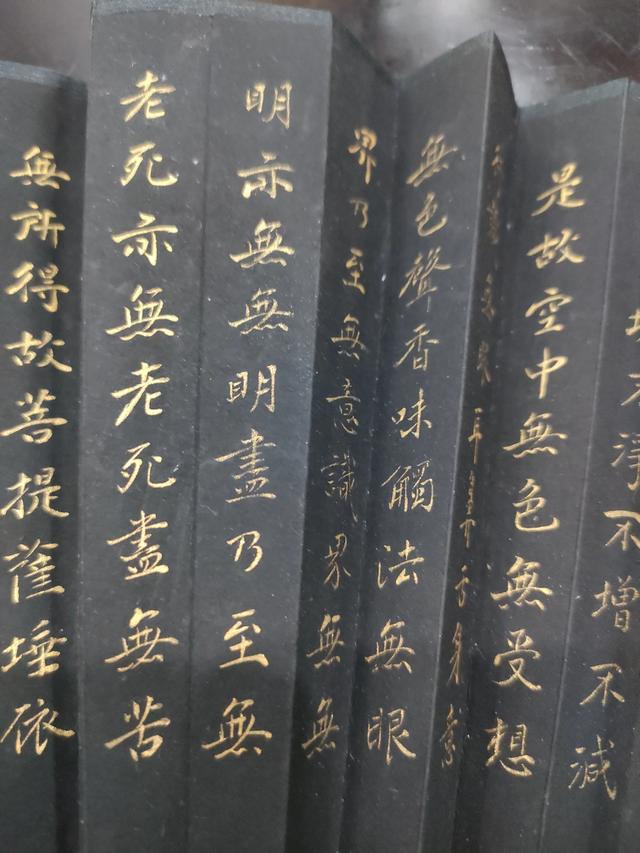 不淨不增不減
是故空中無色無受想
無眼耳鼻舌身意
無色聲香味觸法無眼
界乃至無意識界無無
明亦無無明盡乃至無
老死亦無老死盡無苦
無所得故菩提薩埵依